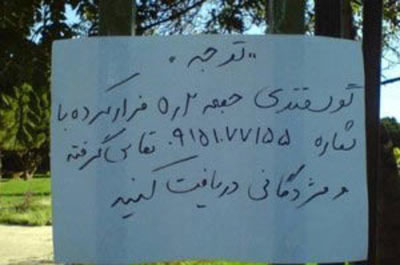 "توجه"
گوسفندی جمعه ۵٫۲ فرار کرده با
شماره ۰۹۱۵۱۰۷۷۱۵۵ تماس گرفته
و مژدگانی دریافت کنید